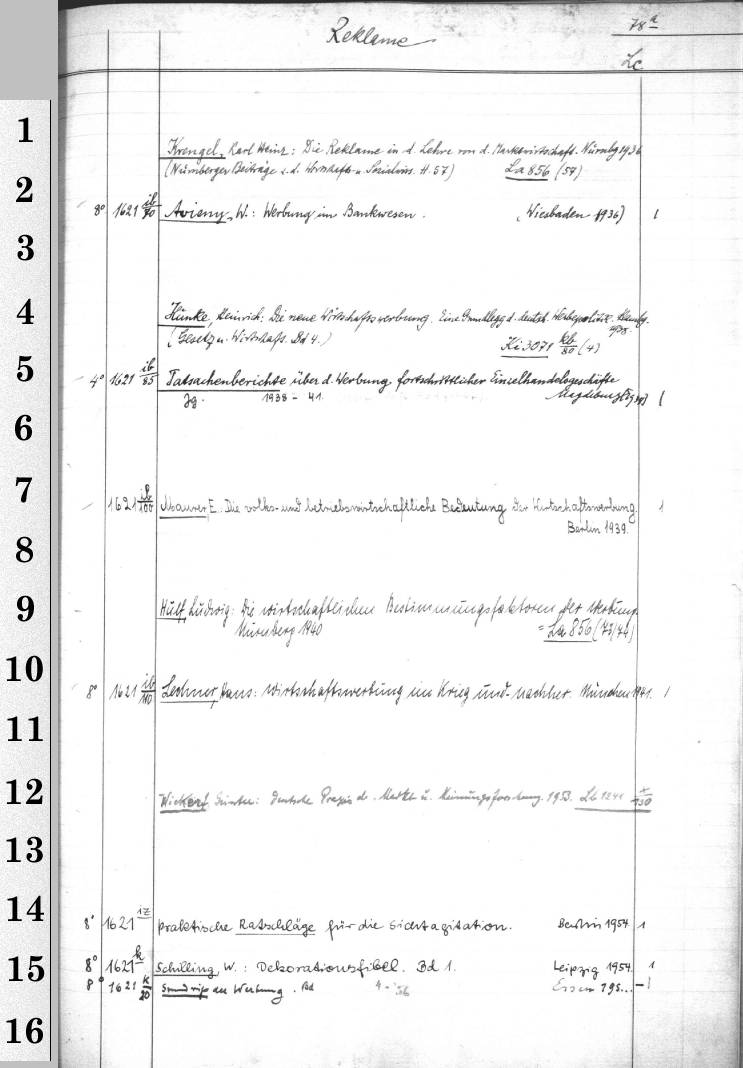 Reklame
78a
Lc
1
Krengel, Karl Heinz: Die Reklame in d. Lehre von d. Marktwirtschaft. Nürnbg 1936
2
(Nürnberger Beiträge z. d. Wirtschafts- u. Sozialwiss. H. 57) La 856 (57)
8° 1621 ib/80 Avieny, W.: Werbung im Bankwesen. (Wiesbaden 1936) 1
3
4
Hunke, Heinrich: Die neue Wirtschaftswerbung. Eine Grundlegg d. deutsch. Werbepolitik. Hambg. 1938.
(Gesetz u. Wirtschaft. Bd 4.) Ki 3071 kb/80 (4)
5
4° 1621 ib/85 Tatsachenberichte über d. Werbung fortschrittlicher Einzelhandelsgeschäfte
Jg. 1938 - 41. Magdeburg 1
6
7
1621 ib/100 Maurer, E.: Die volks- und betriebswirtschaftliche Bedeutung der Wirtschaftswerbung. 1
Berlin 1939.
8
9
Ludwig: Die wirtschaftlichen Bestimmungsfaktoren der Werbung.
Nürnberg 1940 = La 856 (73/74)
10
8° 1621 ib/110 Lechner, Hans: Wirtschaftswerbung im Krieg und nachher. München 1941. 1
11
12
Wickert, Günter: Deutsche Praxis d. Markt- u. Meinungsforschung. 1953. Lb 1241 /130
13
14
8° 1621 iz praktische Ratschläge für die Sichtagitation. Berlin 1954 1
15
8° 1621 k Schilling, W.: Dekorationsfibel. Bd 1. Leipzig 1954. 1
8° 1621 k/20 Grundriss der Werbung. Bd 4 - '56 Essen 195... - 1
16